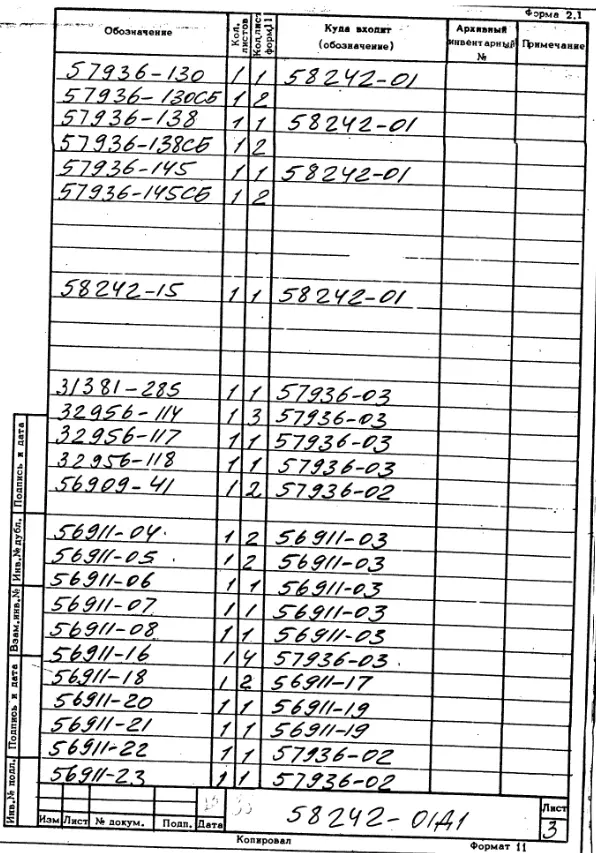 Форма 2.1
Обозначение Кол. листов Кол.лист форм.11 Куда входит (обозначение) Архивный инвентарный № Примечание
57936-130 1 1 58242-01
57936-130СБ 1 2
57936-138 1 1 58242-01
57936-138СБ 1 2
57936-145 1 1 58242-01
57936-145СБ 1 2
58242-15 1 1 58242-01
31381-285 1 1 57936-03
32956-114 1 3 57936-03
32956-117 1 1 57936-03
32956-118 1 1 57936-03
56909-41 1 2 57936-02
56911-04 1 2 56911-03
56911-05 1 2 56911-03
56911-06 1 1 56911-03
56911-07 1 1 56911-03
56911-08 1 1 56911-03
56911-16 1 4 57936-03
56911-18 1 2 56911-17
56911-20 1 1 56911-19
56911-21 1 1 56911-19
56911-22 1 1 57936-02
56911-23 1 1 57936-02
Подпись и дата
Инв.№ дубл.
Взам.инв.№
Подпись и дата
Инв.№ подл.
58242-01Д1
Лист
3
Изм Лист № докум. Подп. Дата
Копировал Формат 11